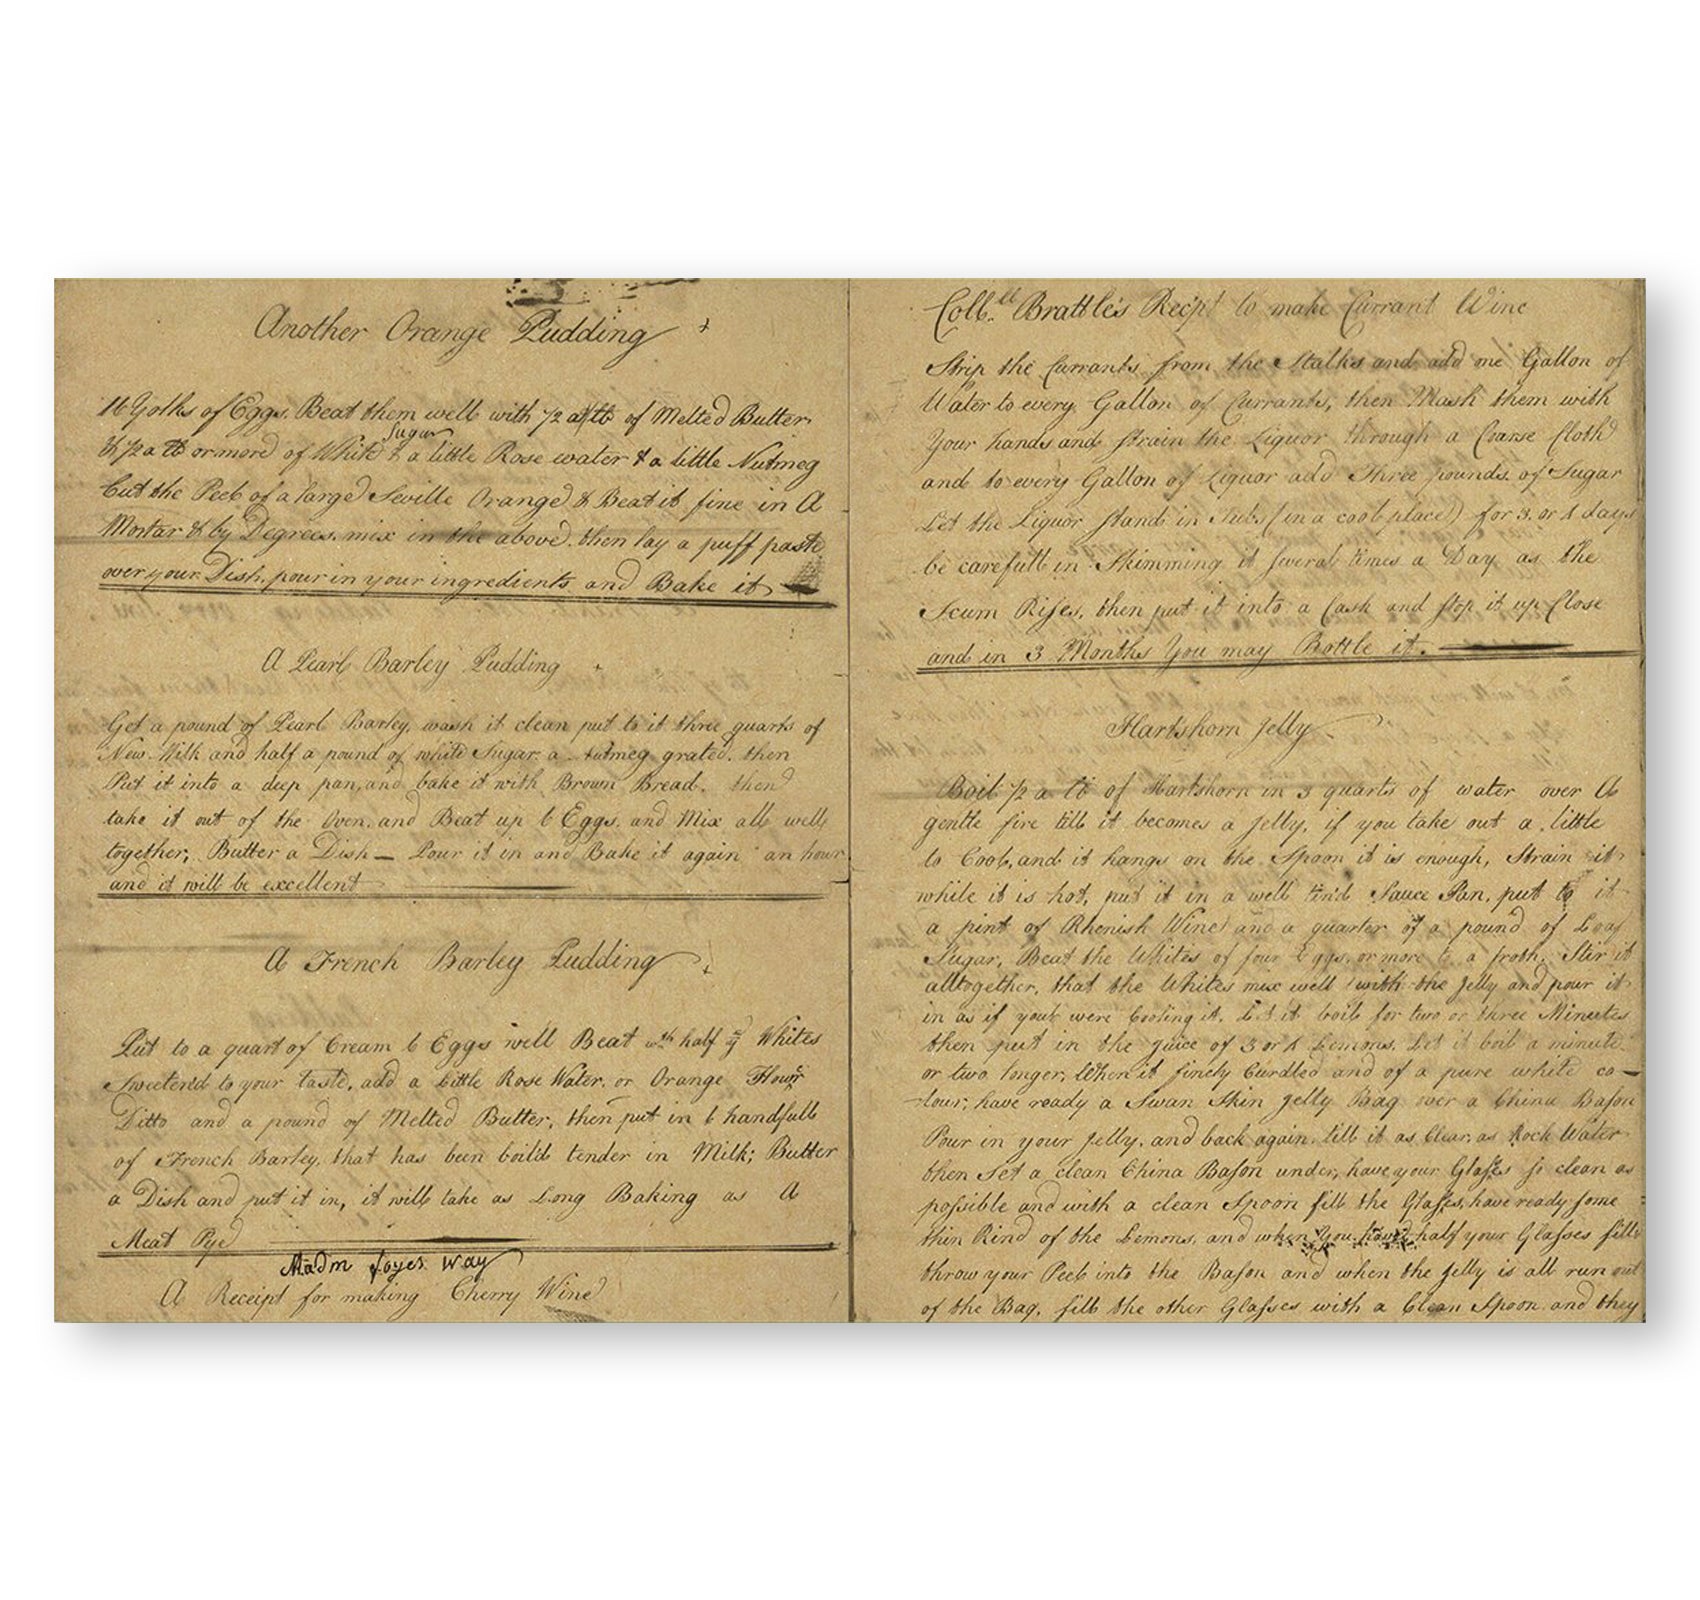 Another Orange Pudding
16 Yolks of Eggs. Beat them well with 1/2 a lb of Melted Butter,
Sugar
& 1/2 a lb or more of White & a little Rose water & a little Nutmeg
Cut the Peel of a large Seville Orange & Beat it fine in A
Mortar & by Degrees mix in the above. then lay a puff paste
over your Dish, pour in your ingredients and Bake it
A Pearl Barley Pudding
Get a pound of Pearl Barley, wash it clean put to it three quarts of
New Milk and half a pound of white Sugar a nutmeg grated, then
Put it into a deep pan, and bake it with Brown Bread. then
take it out of the Oven, and Beat up 6 Eggs, and Mix all well
together, Butter a Dish — Pour it in and Bake it again an hour
and it will be excellent
A French Barley Pudding
Put to a quart of Cream 6 Eggs well Beat wth half ye Whites
Sweeten'd to your taste, add a little Rose Water, or Orange Flowr
Ditto and a pound of Melted Butter, then put in 6 handfull
of French Barley, that has been boil'd tender in Milk; Butter
a Dish and put it in, it will take as Long Baking as A
Meat Pye
Madm Joyes way
A Receipt for making Cherry Wine
Coll.ll Brattle's Recipt to make Currant Wine
Strip the Currants from the Stalks and add one Gallon of
Water to every Gallon of Currants, then Mash them with
Your hands and strain the Liquor through a Coarse Cloth
and to every Gallon of Liquor add Three pounds of Sugar
Let the Liquor stand in Tubs (in a cool place) for 3 or 4 days
be carefull in Skimming it several times a Day as the
Scum Rises, then put it into a Cask and stop it up Close
and in 3 Months You may Bottle it.
Hartshorn Jelly
Boil 1/2 a lb of Hartshorn in 3 quarts of water over A
gentle fire till it becomes a Jelly, if you take out a little
to Cool, and it hangs on the Spoon it is enough, Strain it
while it is hot, put it in a well tin'd Sauce Pan, put to it
a pint of Rhenish Wine and a quarter of a pound of Loaf
Sugar, Beat the Whites of four Eggs, or more to a froth, Stir it
alltogether, that the Whites mix well with the Jelly and pour it
in as if you were Cooling it, Let it boil for two or three Minutes
then put in the juice of 3 or 4 Lemons, Let it boil a minute
or two longer, When it finely Curdled and of a pure white co—
—lour, have ready a Swan Skin Jelly Bag over a China Bason
Pour in your Jelly, and back again till it as Clear as Rock Water
then Set a clean China Bason under, have your Glasses so clean as
possible and with a clean Spoon fill the Glasses, have ready some
thin Rind of the Lemons, and when You have half your Glasses fill'd
throw your Peel into the Bason and when the Jelly is all run out
of the Bag, fill the other Glasses with a Clean Spoon, and they